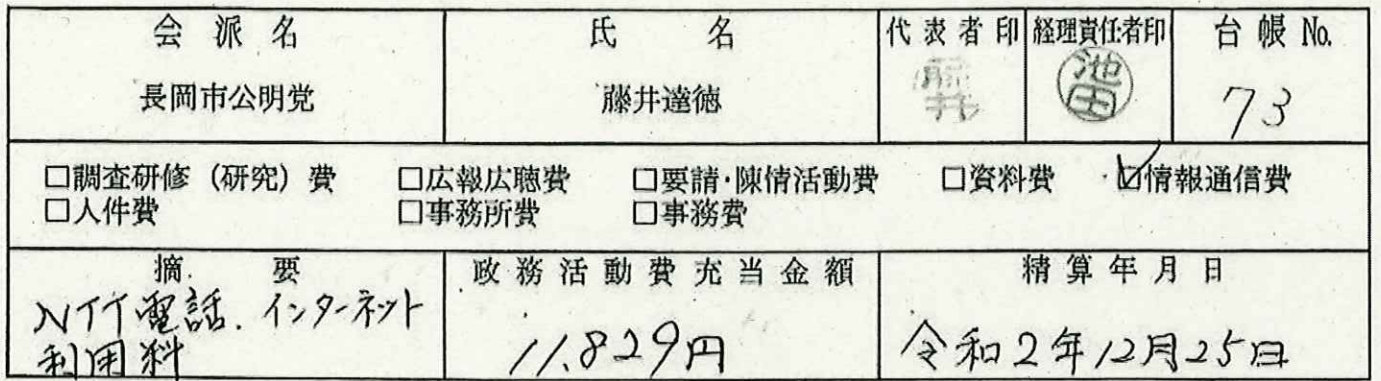 会派名 氏名 代表者印 経理責任者印 台帳No.
長岡市公明党 藤井達徳 藤井 池田 73
□調査研修（研究）費 □広報広聴費 □要請・陳情活動費 □資料費 ☑情報通信費
□人件費 □事務所費 □事務費
摘要 政務活動費充当金額 精算年月日
NTT電話.インターネット
利用料 11,829円 令和2年12月25日